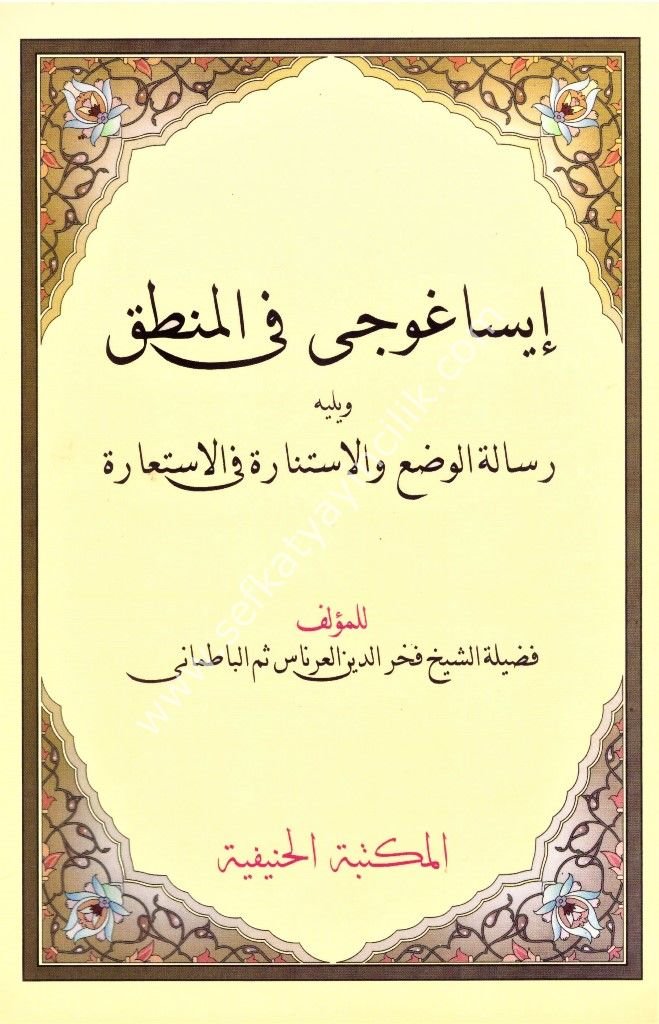 إيساغوجى فى المنطق
ويليه
رسالة الوضع والاستنارة فى الاستعارة
للمؤلف
فضيلة الشيخ فخر الدين العرناسى ثم الباطمانى
المكتبة الحنيفية
www.sefkatyayincilik.com